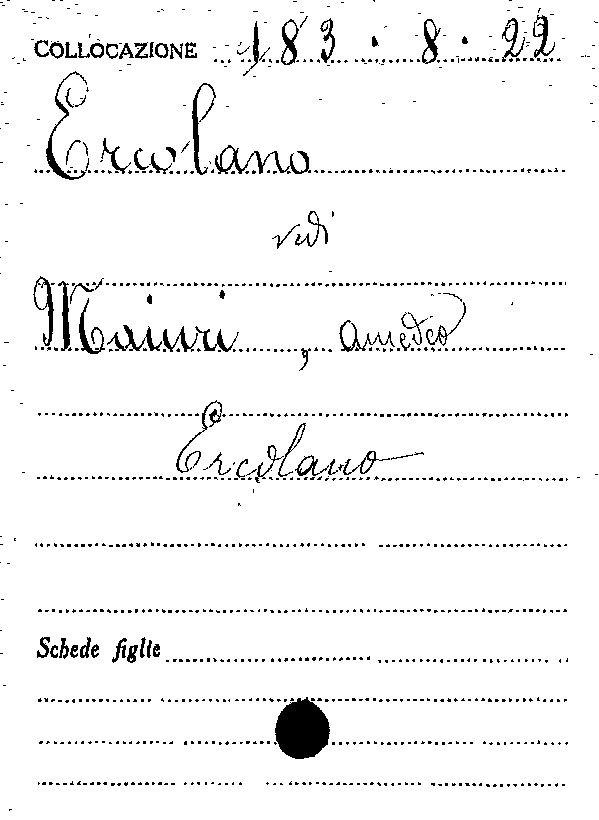 COLLOCAZIONE 183.8.22
Ercolano
vedi
Maiuri, Amedeo
Ercolano
Schede figlie